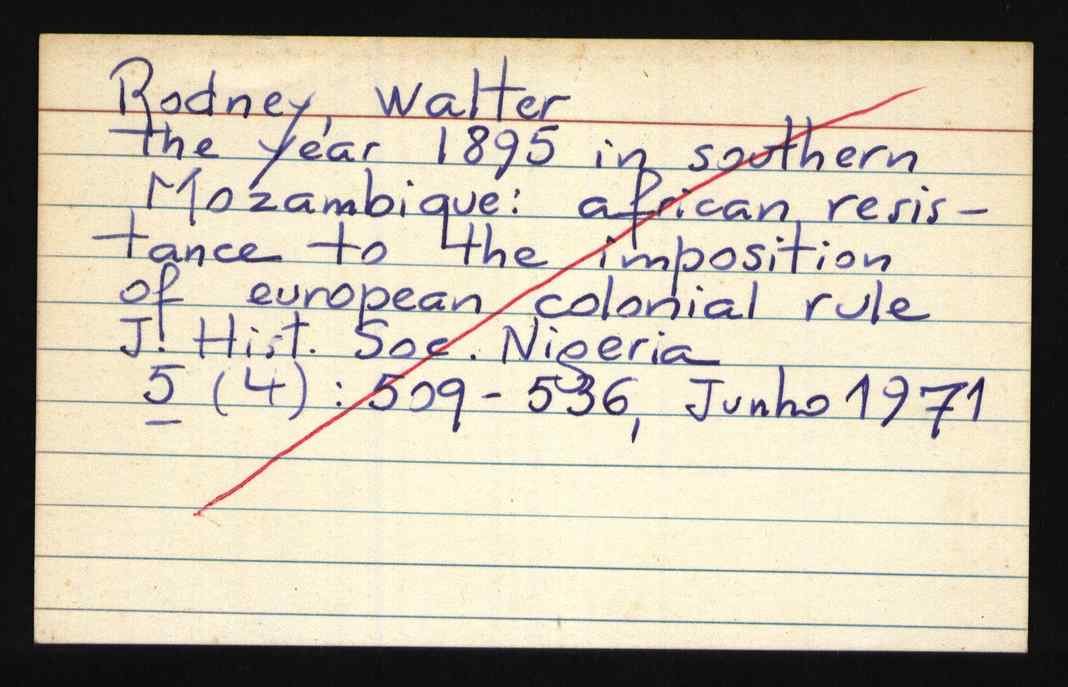 Rodney, Walter
The year 1895 in southern
Mozambique: african resis-
tance to the imposition
of european colonial rule
J. Hist. Soc. Nigeria
5 (4) : 509 - 536, Junho 1971